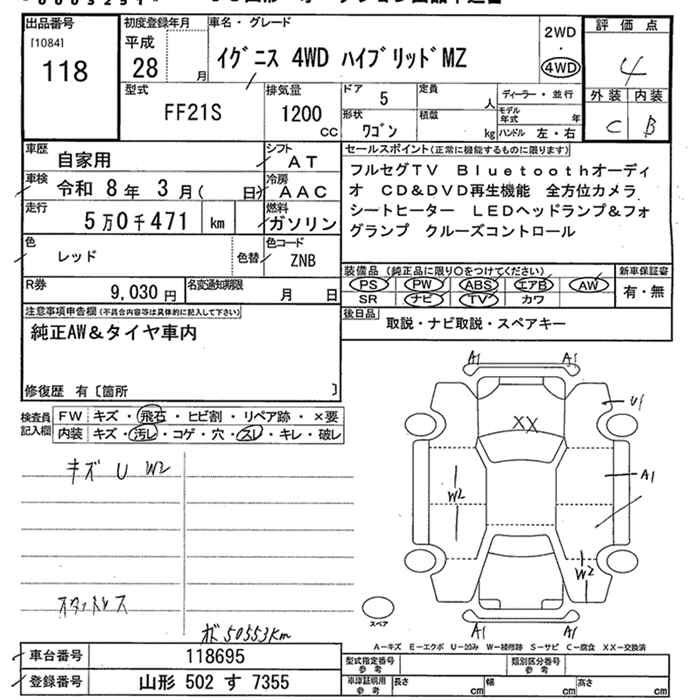 出品番号
[1084]
118
初度登録年月
平成
28 月
車名・グレード
イグニス 4WD ハイブリッドMZ
2WD
・
4WD
評価点
4
外装 内装
C B
型式
FF21S
排気量
1200
cc
ドア 5
定員 人
形状 ワゴン
積載 kg
ディーラー・並行
モデル年式 年
ハンドル 左・右
車歴
自家用
シフト
AT
車検
令和 8年 3月( 日)
冷房
AAC
走行
5万0千471 km
燃料
ガソリン
色
レッド
色替
色コード
ZNB
R券
9,030円
名変通知期限
月 日
セールスポイント(正常に機能するものに限ります)
フルセグTV Bluetoothオーディ
オ CD&DVD再生機能 全方位カメラ
シートヒーター LEDヘッドランプ&フォ
グランプ クルーズコントロール
装備品(純正品に限り○をつけてください)
PS PW ABS エアB AW
SR ナビ TV カワ
新車保証書
有・無
後日品
取説・ナビ取説・スペアキー
注意事項申告欄(不具合内容等は具体的に記入して下さい)
純正AW&タイヤ車内
修復歴 有〔箇所 〕
検査員
記入欄
FW キズ・飛石・ヒビ割・リペア跡・×要
内装 キズ・汚レ・コゲ・穴・スレ・キレ・破レ
キズ U W2
スタットレス
50553Km
A1 A1
U1
XX
W2
A1
W2
A1 A1
スペア
A-キズ E-エクボ U-凹み W-補修跡 S-サビ C-腐食 XX-交換済
車台番号
118695
登録番号
山形 502 す 7355
型式指定番号
参考
類別区分番号
参考
車庫証明用
参考
長さ cm
幅 cm
高さ cm